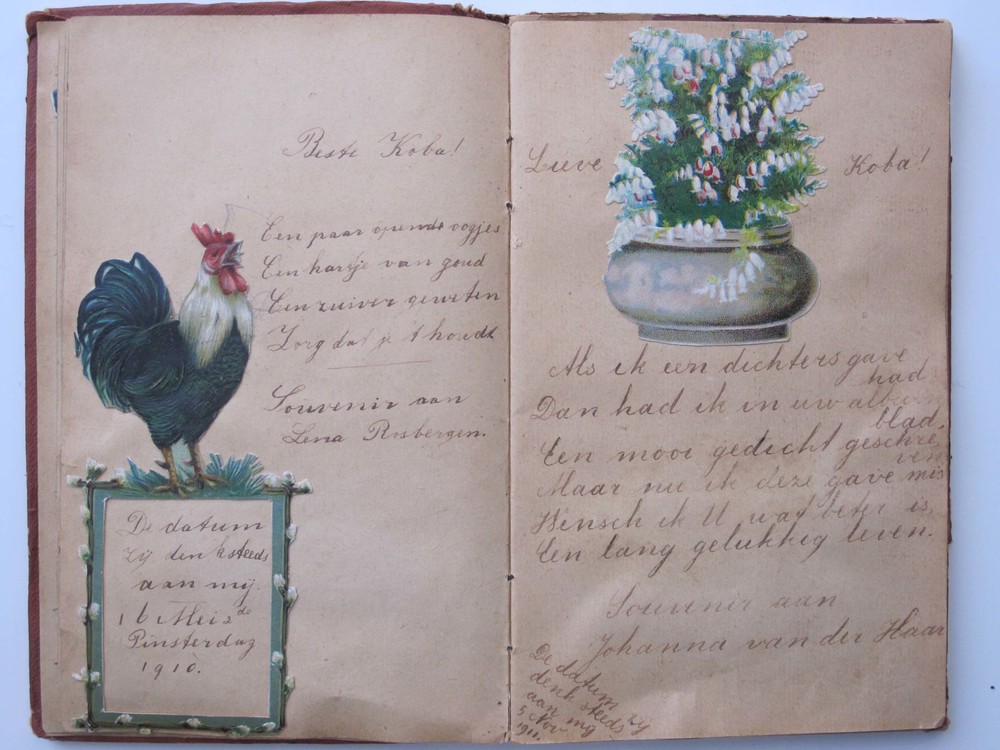 Beste Koba!
Een paar opende oogjes
Een hartje van goud
Een zuiver geweten
Zorg dat je 't houdt
Souvenir aan
Lena Rosbergen.
De datum
zij denk steeds
aan mij.
16 Mei 2de
Pinsterdag
1910.
Lieve Koba!
Als ik een dichters gave
had
Dan had ik in uw album
blad,
Een mooi gedicht geschre,
ven
Maar nu ik deze gave mis
Wensch ik U wat beter is,
Een lang gelukkig leven.
Souvenir aan
Johanna van der Haar
De datum zij
denk steeds
aan mij
5 Nov
1911.